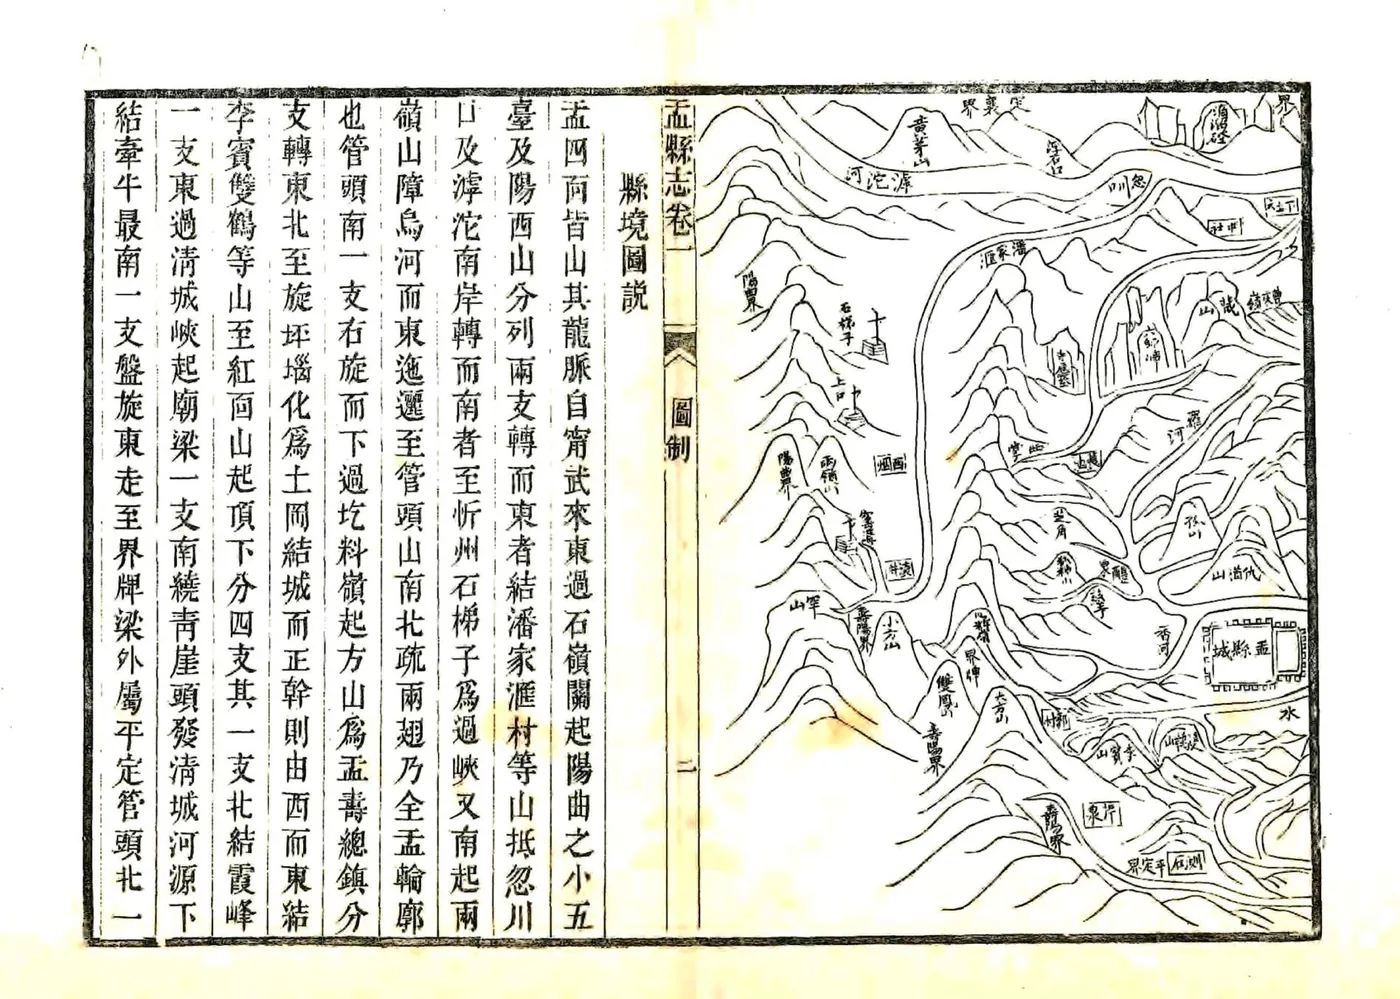 界
定襄界
黄茅山
滹沱河
忽川口
中社
潘家滙
陽曲界
石梯子
藏山
上口
陽曲界
兩嶺山
西烟
羅河
芝角
仇猶山
罕山
壽陽界
小方山
香河
盂縣城
界牌
雙鳳山
大方山
壽陽界
水
李賓山
壽陽界
芹泉
測石
平定界
盂縣志卷一
圖制
二
縣境圖説
盂四面皆山其龍脈自甯武來東過石嶺關起陽曲之小五
臺及陽西山分列兩支轉而東者結潘家滙村等山抵忽川
口及滹沱南岸轉而南者至忻州石梯子爲過峽又南起兩
嶺山障烏河而東迤邐至管頭山南北疏兩翅乃全盂輪廓
也管頭南一支右旋而下過圪料嶺起方山爲盂壽總鎮分
支轉東北至旋坪堖化爲土岡結城而正幹則由西而東結
李賓雙鶴等山至紅面山起頂下分四支其一支北結霞峰
一支東過清城峽起廟梁一支南繞青崖頭發清城河源下
結牽牛最南一支盤旋東走至界牌梁外屬平定管頭北一